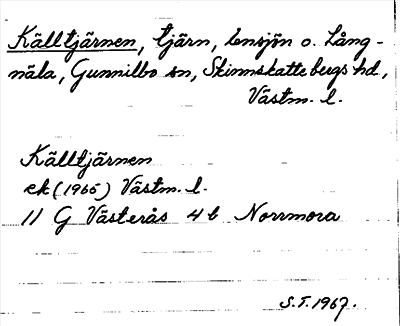 Källtjärnen, tjärn, Ensjön o. Lång-
näla, Gunnilbo sn, Skinnskattebergs hd,
Västm. l.
Källtjärnen
ek (1965) Västm. l.
11 G Västerås 4 b Norrmora
S.T. 1967.